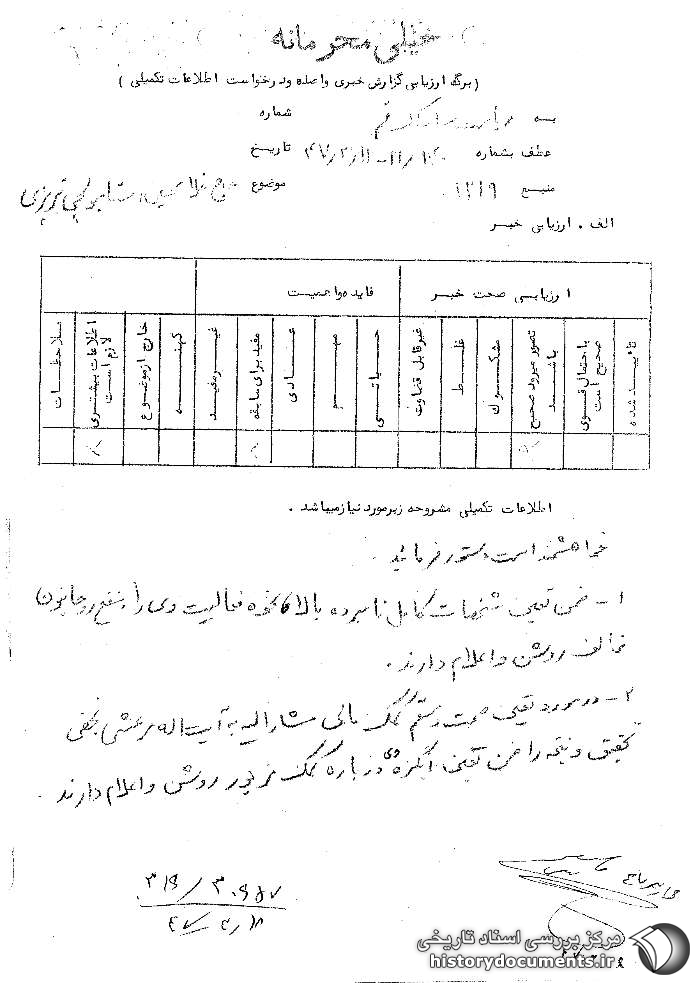 خیلی محرمانه
(برگه ارزیابی گزارش خبری واصله و درخواست اطلاعات تکمیلی)
به ریاست ساواک قم
شماره
عطف بشماره
تاریخ
منبع ۱۲۱۹
موضوع حاج غلامحسین تبریزی
الف . ارزیابی خبر
ارزیابی صحت خبر
فایده و اهمیت
تائید شده
با احتمال قوی صحیح است
تصور میرود صحیح باشد
مشکوک
غلط
غیرقابل قضاوت
حیاتی
مهم
عادی
مفید برای سابقه
غیرمفید
کهنه
خارج از موضوع
اطلاعات بیشتری لازم است
ملاحظات
اطلاعات تکمیلی مشروحه زیر مورد نیاز میباشد .
خواهشمند است دستور فرمائید .
۱- ضمن تعیین مشخصات کامل نامبرده بالا نحوه فعالیت وی را بنفع روحانیون
مخالف روشن و اعلام دارند .
۲- در مورد تعیین صحت و سقم کمک مالی مشارالیه به آیت اله مرعشی نجفی
تحقیق و نتیجه را ضمن تعیین انگیزه وی درباره کمک مزبور روشن و اعلام دارند .
مرکز بررسی اسناد تاریخی
historydocuments.ir